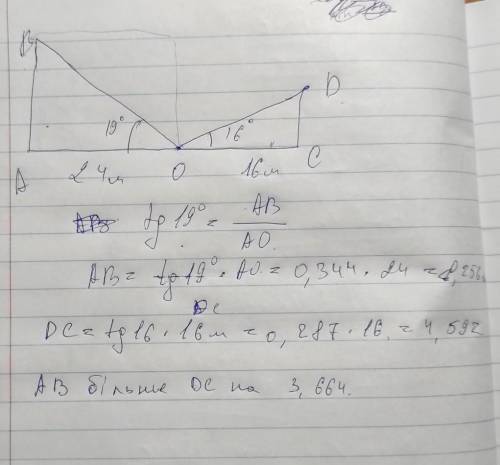 B
D
19° 16°
A 24м O 16м C
tg 19° = AB / AO
AB = tg 19° · AO = 0,344 · 24 = 8,256
DC = tg 16 · 16м = 0,287 · 16 = 4,592
AB більше DC на 3,664.